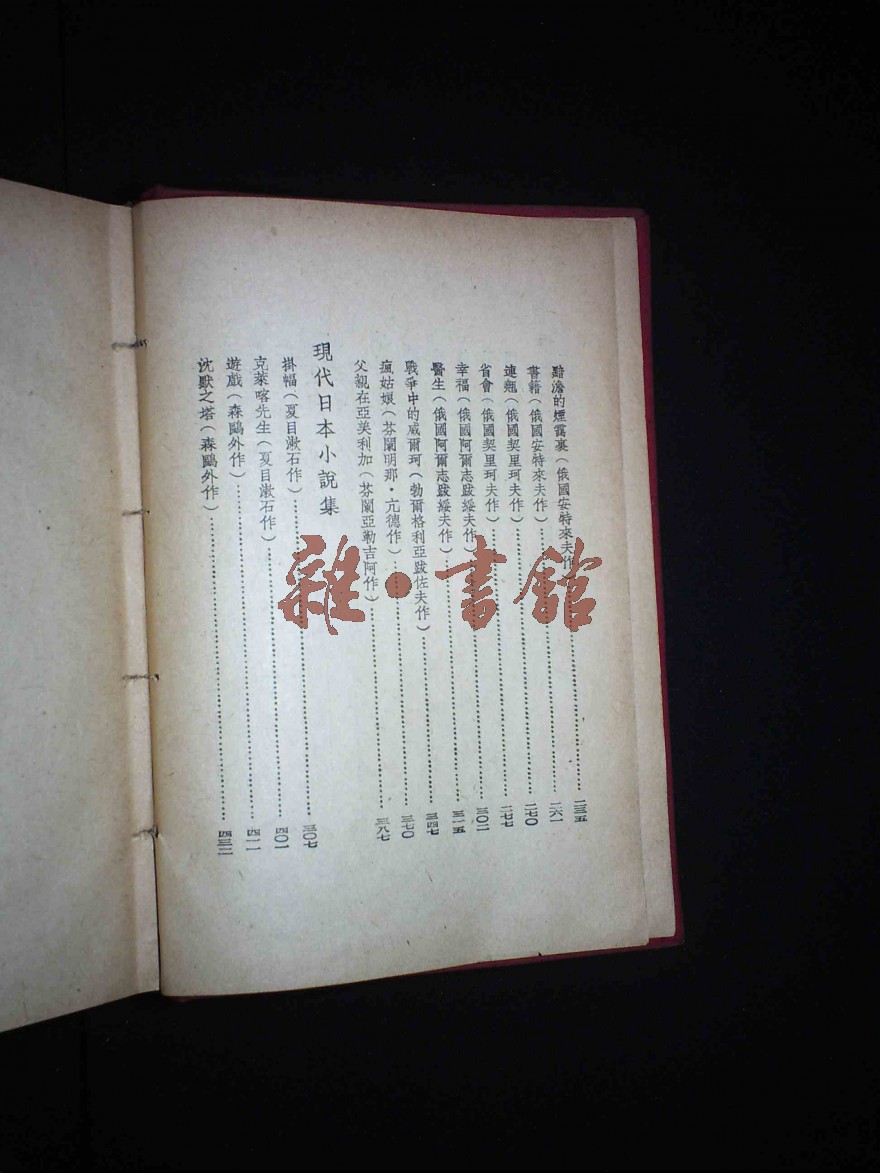 黯澹的煙靄裏(俄國安特來夫作)……二三五
書籍(俄國安特來夫作)……二六一
連翹(俄國契里珂夫作)……二七〇
省會(俄國契里珂夫作)……二七七
幸福(俄國阿爾志跋綏夫作)……三〇二
醫生(俄國阿爾志跋綏夫作)……三一五
戰爭中的威爾珂(勃爾格利亞跋佐夫作)……三四七
瘋姑娘(芬闌明那·亢德作)……三七〇
父親在亞美利加(芬闌亞勒吉阿作)……三八七
現代日本小說集
掛幅(夏目漱石作)……三〇七
克萊喀先生(夏目漱石作)……四〇一
遊戲(森鷗外作)……四一一
沈默之塔(森鷗外作)……四三二
雜·書館